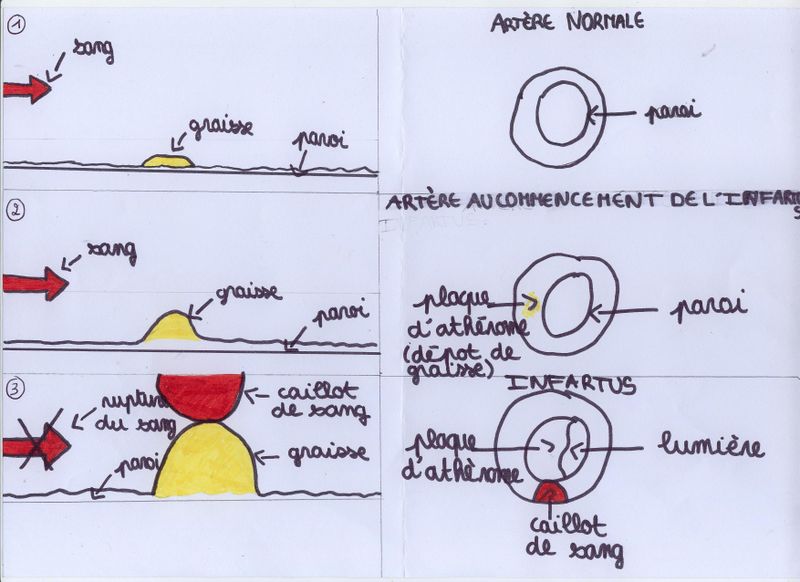 1
sang
graisse
paroi
ARTÈRE NORMALE
paroi
2
sang
graisse
paroi
ARTÈRE AU COMMENCEMENT DE L'INFARTUS
plaque
d'athérome
(dépot de
graisse)
paroi
3
rupture
du sang
paroi
caillot
de sang
graisse
INFARTUS
plaque
d'athérome
lumière
caillot
de sang